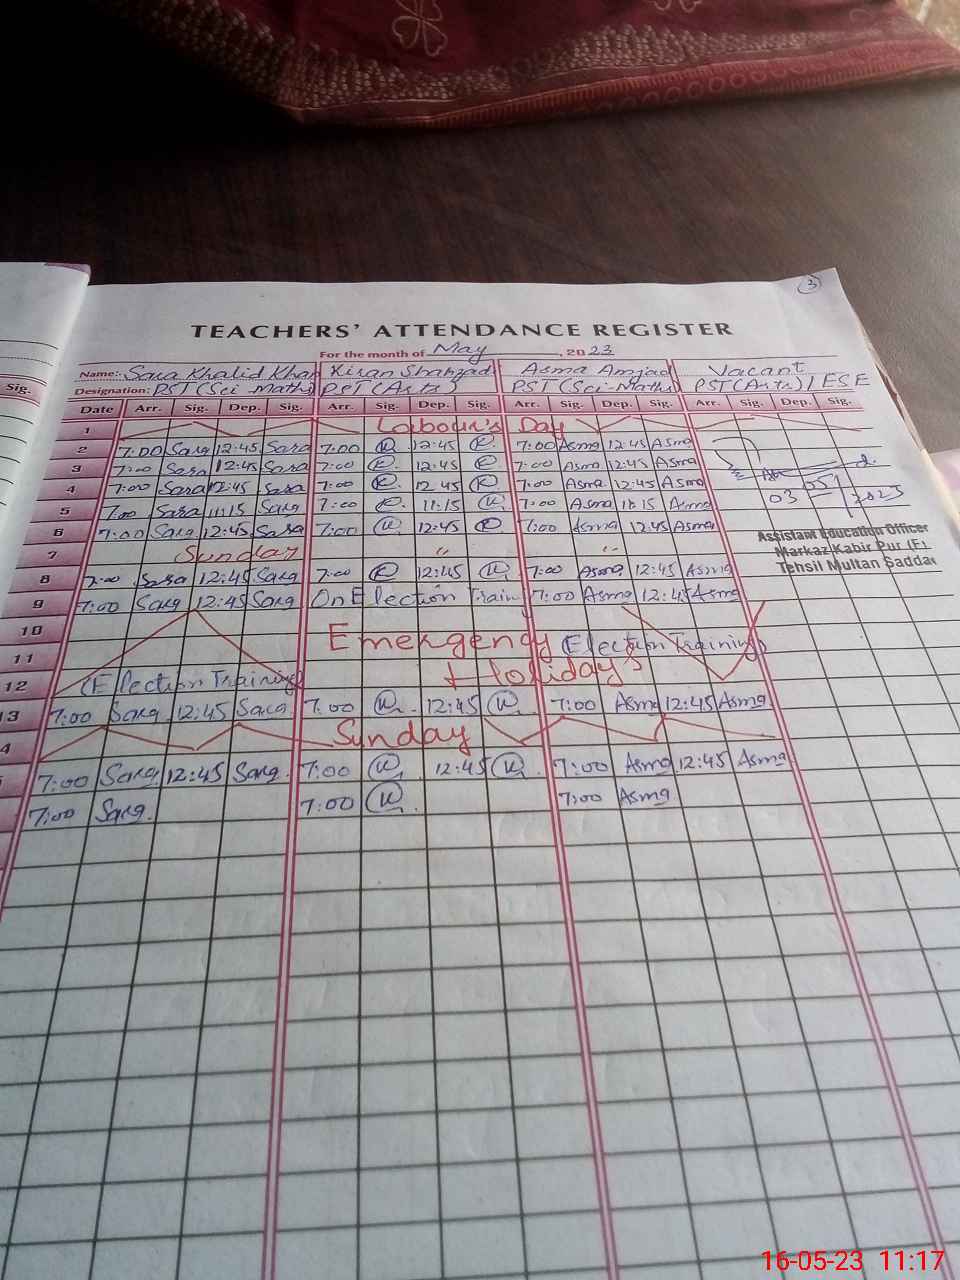 3
TEACHERS' ATTENDANCE REGISTER
For the month of May, 2023
Sig. Name: Sara Khalid Khan Kiran Shahzad Asma Amjad Vacant
Designation: PST (Sci-Maths) PST (Arts) PST (Sci-Maths) PST (Arts) / ESE
Date Arr. Sig. Dep. Sig. Arr. Sig. Dep. Sig. Arr. Sig. Dep. Sig. Arr. Sig. Dep. Sig.
1 Labour's Day
2 7:00 Sara 12:45 Sara 7:00 K 12:45 K 7:00 Asma 12:45 Asma
3 7:00 Sara 12:45 Sara 7:00 K 12:45 K 7:00 Asma 12:45 Asma
4 7:00 Sara 12:45 Sara 7:00 K 12:45 K 7:00 Asma 12:45 Asma
03 05 2023
5 7:00 Sara 11:15 Sara 7:00 K 11:15 K 7:00 Asma 11:15 Asma
6 7:00 Sara 12:45 Sara 7:00 K 12:45 K 7:00 Asma 12:45 Asma
Assistant Education Officer
Markaz Kabir Pur (F)
Tehsil Multan Saddar
7 Sunday " "
8 7:00 Sara 12:45 Sara 7:00 K 12:45 K 7:00 Asma 12:45 Asma
9 7:00 Sara 12:45 Sara On Election Train 7:00 Asma 12:45 Asma
10 Emergency (Election Training)
11 Holidays
12 (Election Training)
13 7:00 Sara 12:45 Sara 7:00 K 12:45 K 7:00 Asma 12:45 Asma
4 Sunday
7:00 Sara 12:45 Sara 7:00 K 12:45 K 7:00 Asma 12:45 Asma
7:00 Sara 7:00 K 7:00 Asma
16-05-23 11:17